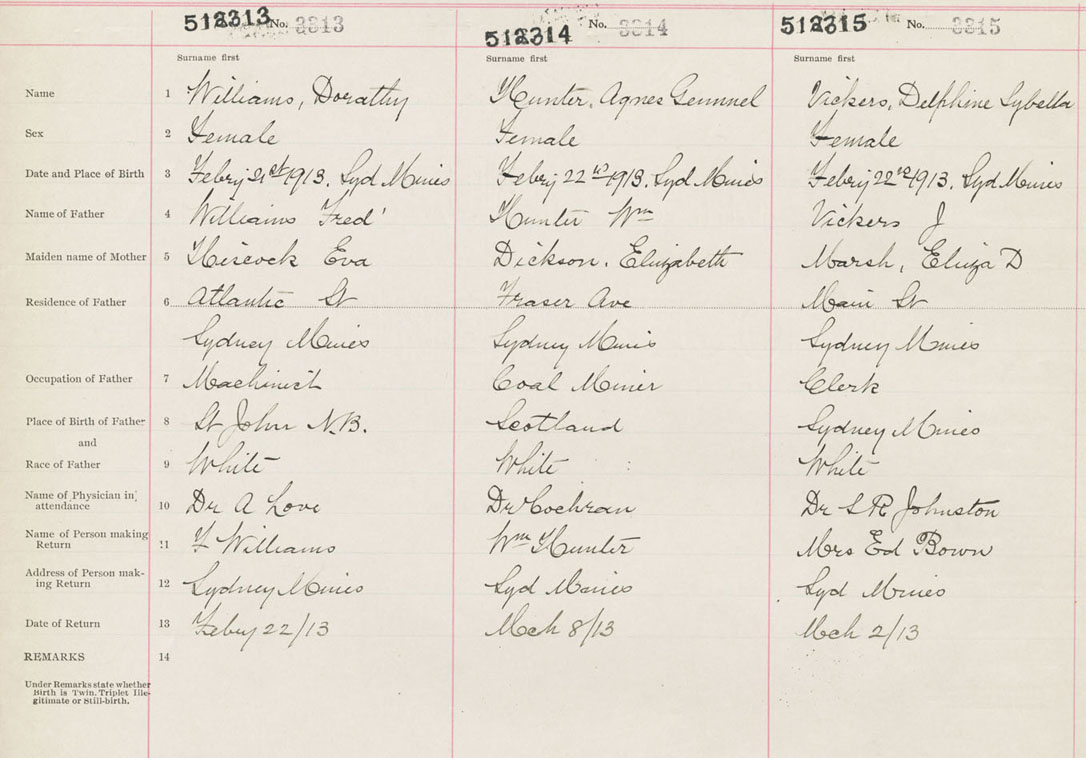 512313 No. 3313 512314 No. 3314 512315 No. 3315
Surname first Surname first Surname first
Name 1 Williams, Dorathy Hunter, Agnes Gemmel Vickers, Delphine Sybella
Sex 2 Female Female Female
Date and Place of Birth 3 Febry 21st 1913. Syd Mines Febry 22nd 1913. Syd Mines Febry 22nd 1913. Syd Mines
Name of Father 4 Williams Fred' Hunter Wm Vickers J
Maiden name of Mother 5 Hiscock Eva Dickson. Elizabeth Marsh, Eliza D
Residence of Father 6 Atlantic St Fraser Ave Main St
Sydney Mines Sydney Mines Sydney Mines
Occupation of Father 7 Machinist Coal Miner Clerk
Place of Birth of Father 8 St John N.B. Scotland Sydney Mines
and
Race of Father 9 White White White
Name of Physician in
attendance 10 Dr A Love Dr Cochran Dr L R Johnston
Name of Person making
Return 11 F Williams Wm Hunter Mrs Ed Bown
Address of Person mak-
ing Return 12 Sydney Mines Syd Mines Syd Mines
Date of Return 13 Febry 22/13 Mch 8/13 Mch 2/13
REMARKS 14
Under Remarks state whether
Birth is Twin. Triplet Ille-
gitimate or Still-birth.